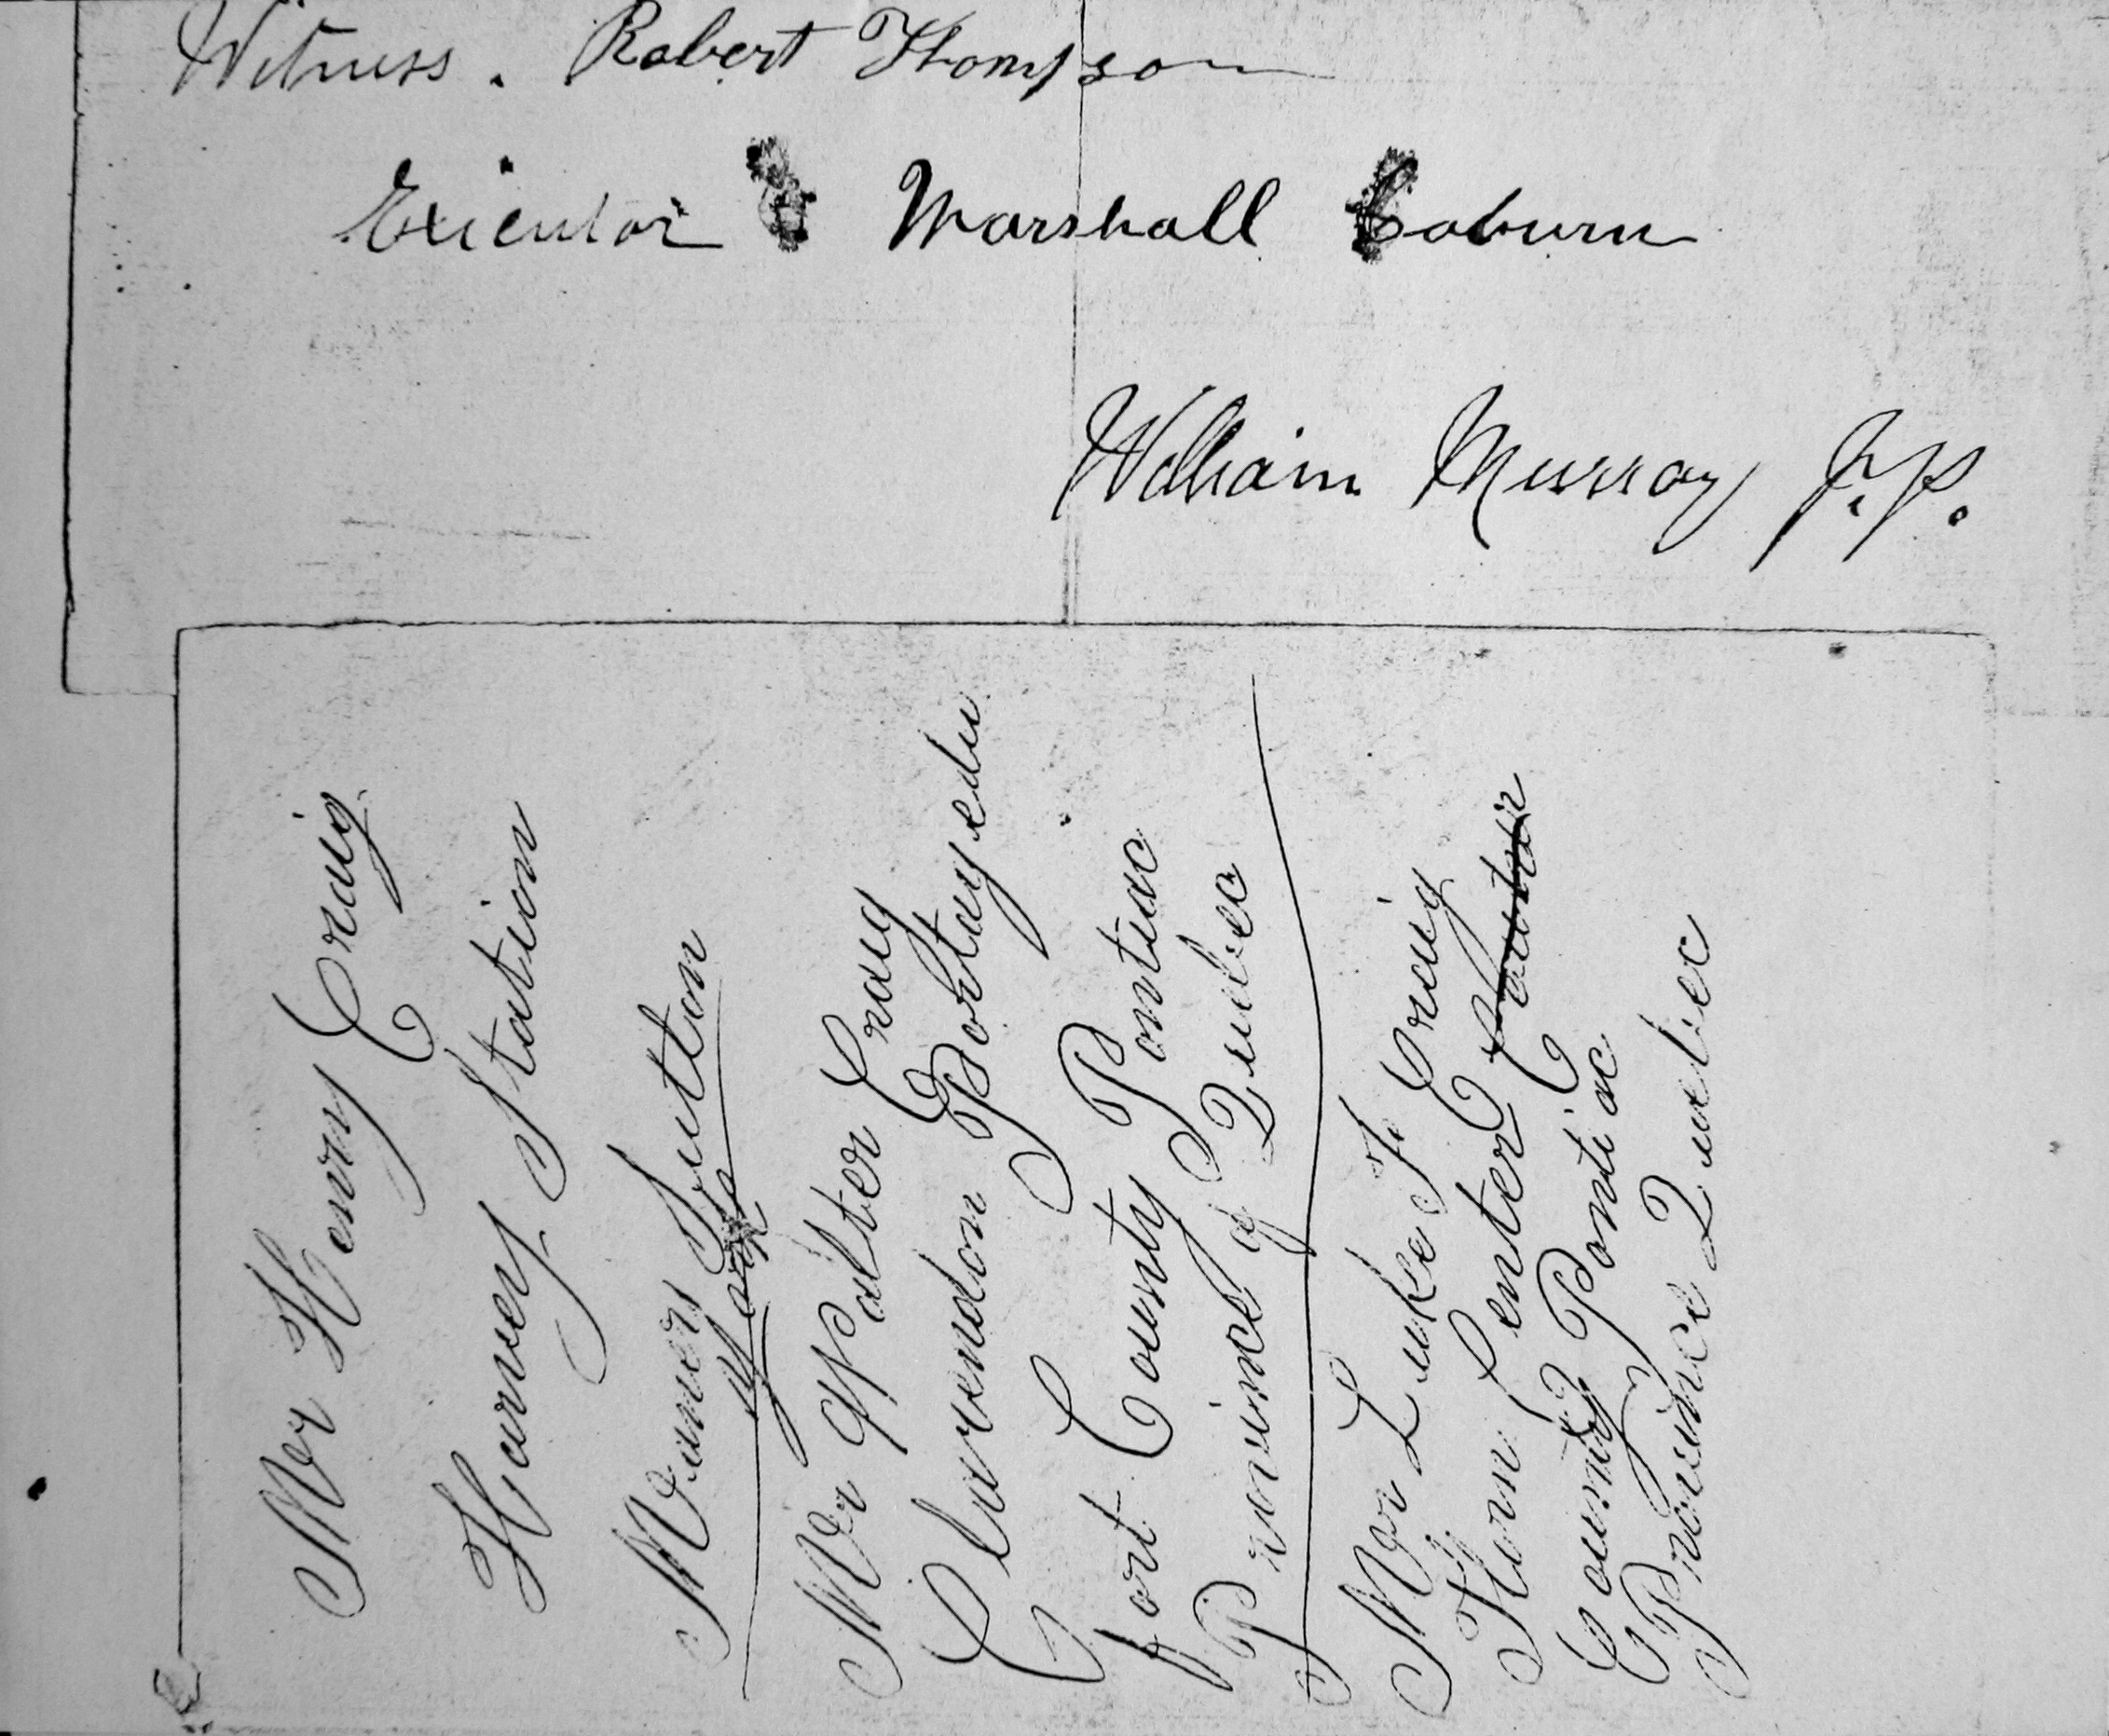 Witness. Robert Thompson
Exicutor Marshall Coburn
William Murray J.P.
Mr Henry Craig
Harvey Station
Maners Sutton
York
Mr Walter Craig
Clarendon Portugedu
fort County Pontiac
Province of Quebec
Mr Luke F Craig
Thorn Center
County Pontiac
Province Quebec